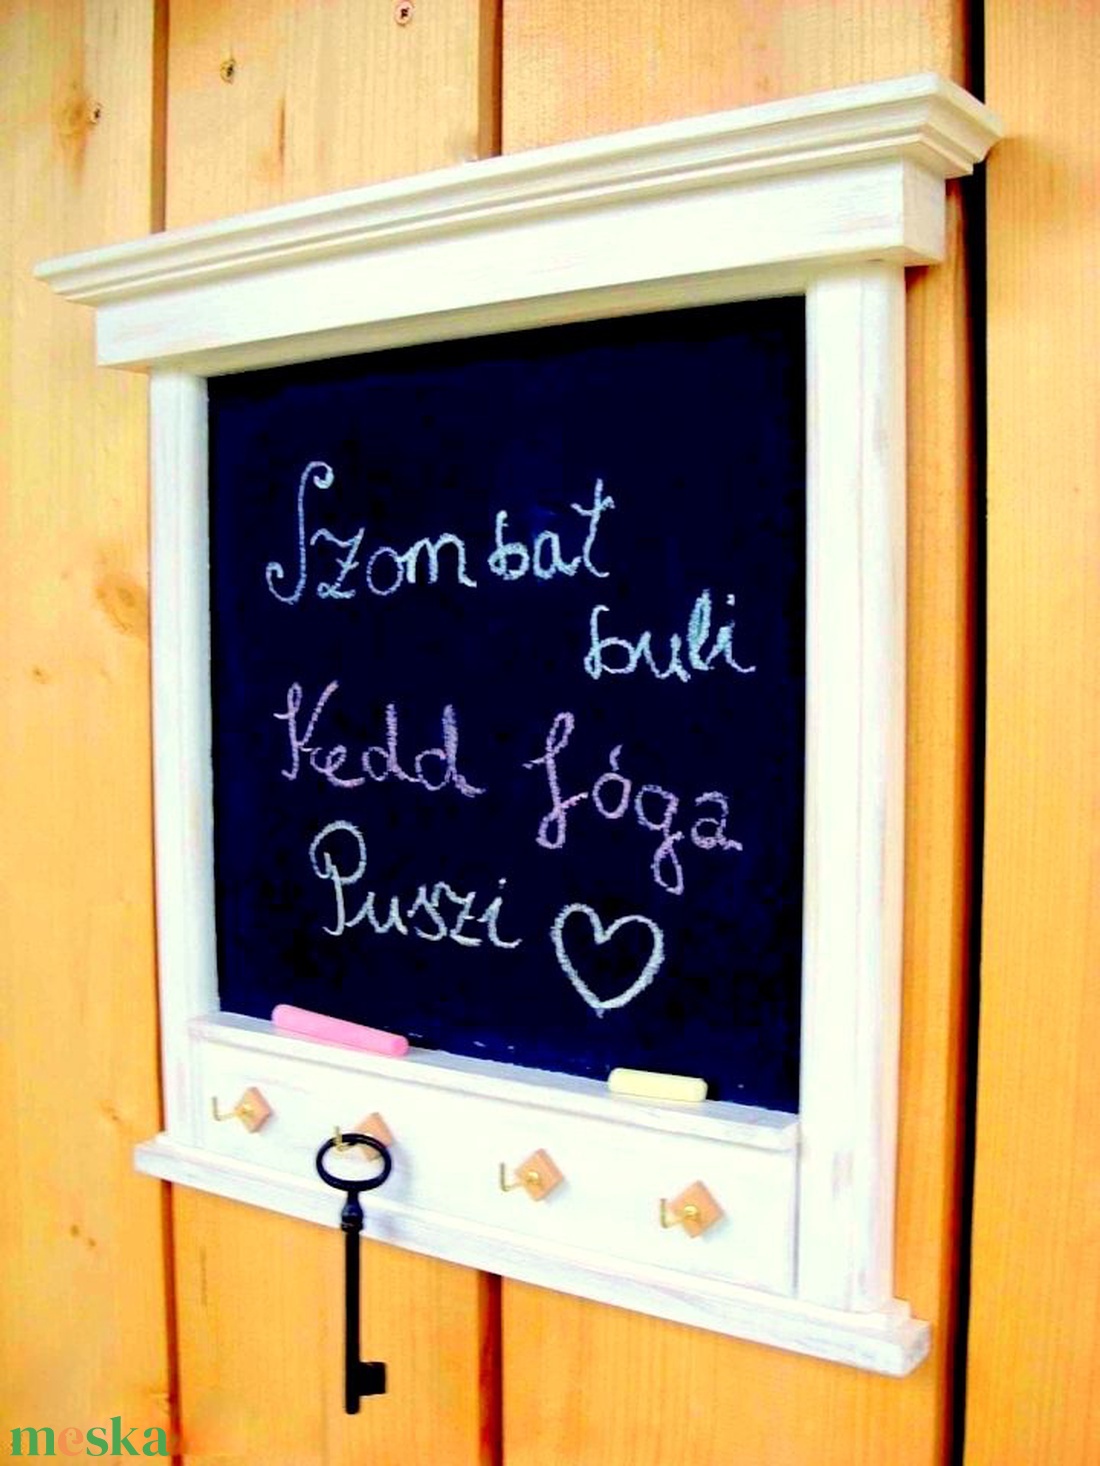 Szombat
buli
Kedd Jóga
Puszi
meska